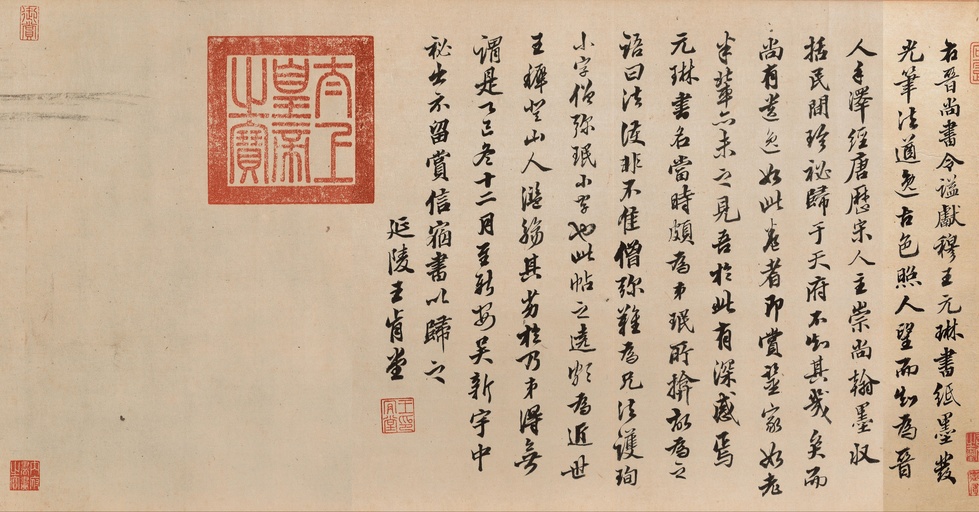 右晉尚書令諡獻穆王元琳書紙墨發
光筆法遒逸古色照人望而知為晉
人手澤經唐歷宋人主崇尚翰墨收
括民間珍秘歸于天府不知其幾矣而
尚有遺逸如此卷者即賞鑒家如老
米輩亦未之見吾於此有深感焉
元琳書名當時頗為弟珉所揜故為之
語曰法護非不佳僧弥難為兄法護珣
小字僧弥珉小字也此帖之為近世
王穉登山人濫觴其劣於乃弟得無
謂是冬十二月至新安吳新宇中
秘出示留賞信宿書以歸之
延陵王肯堂
太上
皇帝
之寶
御賞